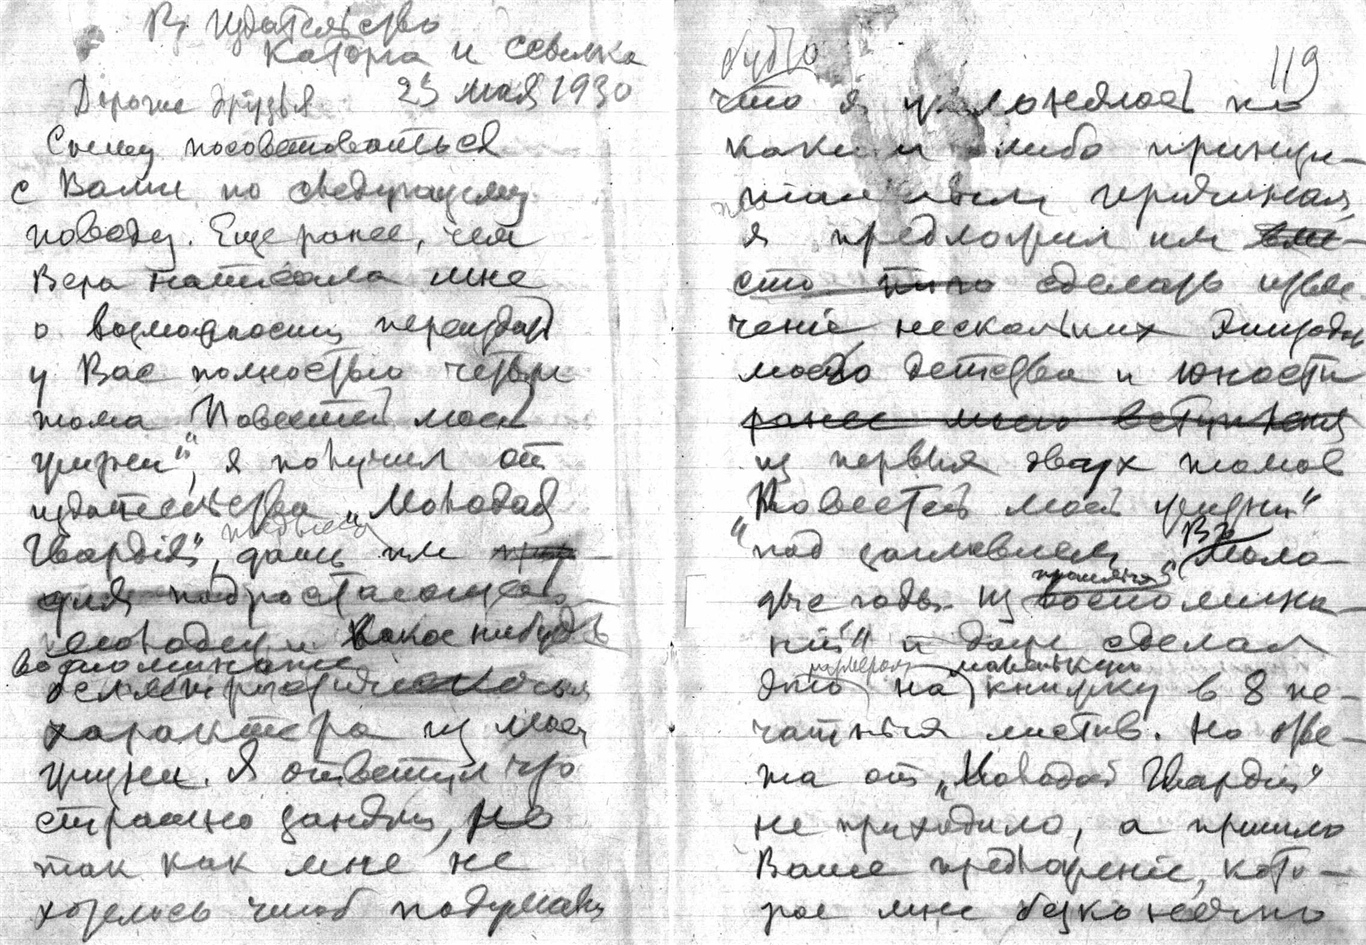 В издательство
Каторга и ссылка
Дорогие друзья 23 мая 1930
Спешу посоветоваться
с Вами по следующему
поводу. Еще ранее, чем
Вера написала мне
о возможности переиздать
у Вас полностью четыре
тома "Повестей моей
жизни", я получил от
издательства "Молодая
Гвардия", дать им
для подростающей
молодежи какое нибудь
воспоминание
беллетристическаго
характера из моей
жизни. Я ответил что
страшно занят, но
так как мне не
хотелось чтоб подумали
будто 119
что я уклоняюсь по
каким либо принци-
пиальным причинам,
я предложил им вме-
сто того сделать извле-
чение нескольких эпизодов
моего детства и юности
ранее моего вступления
из первых двух томов
"Повестей моей жизни"
под заглавием "В моло-
прошлаго
дые годы. Из воспомина-
ний" и даже сделал
размером маленькую
это на книжку в 8 пе-
чатных листов. Но отве-
та от "Молодой Гвардии"
не приходило, а пришло
Ваше предложение, кото-
рое мне бесконечно